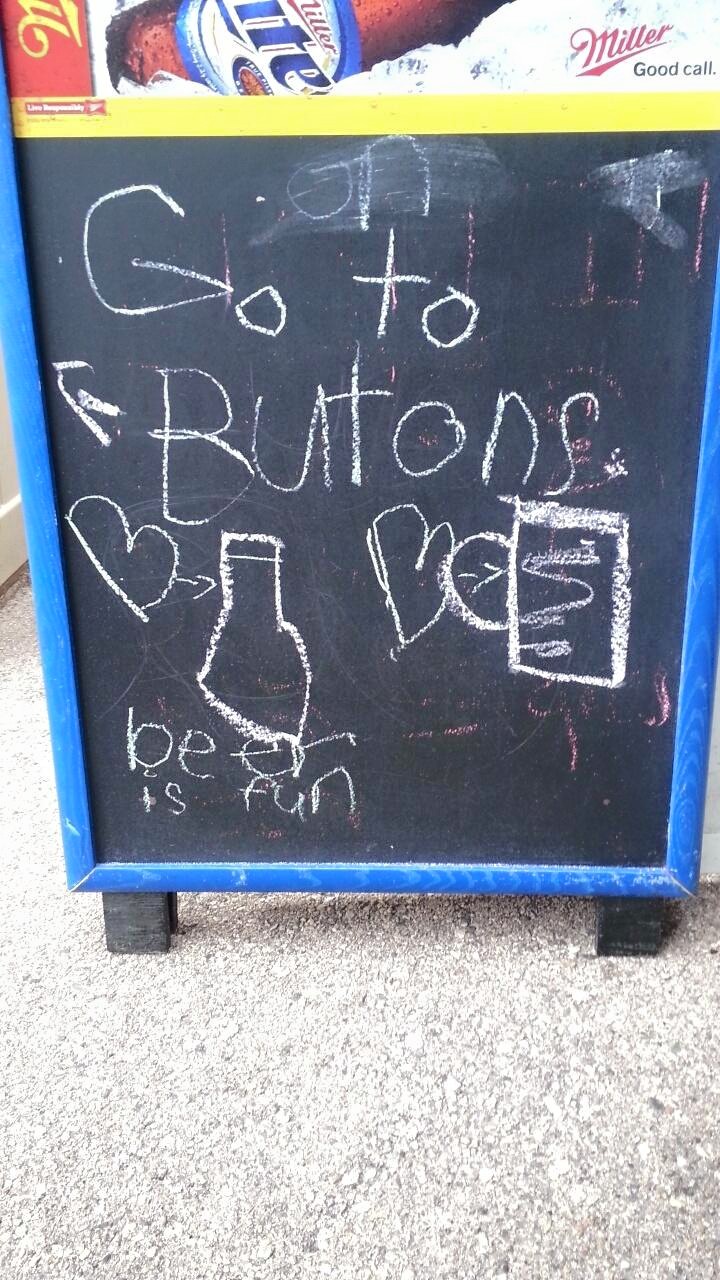 Miller
Lite
Miller
Good call.
Live Responsibly
on
Go to
Butons
beer
is fun